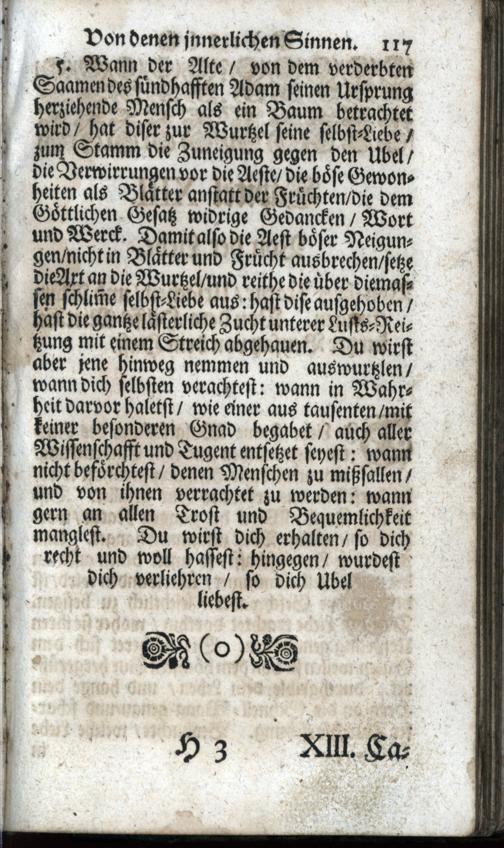 Von denen jnnerlichen Sinnen. 117
5. Wann der Alte / von dem verderbten
Saamen des sündhafften Adam seinen Ursprung
herziehende Mensch als ein Baum betrachtet
wird / hat diser zur Wurtzel seine selbst-Liebe /
zum Stamm die Zuneigung gegen den Ubel /
die Verwirrungen vor die Aeste / die böse Gewon-
heiten als Blätter anstatt der Früchten / die dem
Göttlichen Gesatz widrige Gedancken / Wort
und Werck. Damit also die Aest böser Neigun-
gen / nicht in Blätter und Frücht ausbrechen / setze
die Axt an die Wurtzel / und reithe die über die mas-
sen schlim̅e selbst-Liebe aus: hast dise ausgehoben /
hast die gantze lästerliche Zucht unterer Lusts-Rei-
tzung mit einem Streich abgehauen. Du wirst
aber jene hinweg nemmen und auswurtzlen /
wann dich selbsten verachtest: wann in Wahr-
heit darvor haletst / wie einer aus tausenten / mit
keiner besonderen Gnad begabet / auch aller
Wissenschafft und Tugent entsetzet seyest: wann
nicht beförchtest / denen Menschen zu mißfallen /
und von ihnen verrachtet zu werden: wann
gern an allen Trost und Bequemlichkeit
manglest. Du wirst dich erhalten / so dich
recht und woll hassest: hingegen / wurdest
dich verliehren / so dich Ubel
liebest.
(o)
H 3 XIII. Ca-